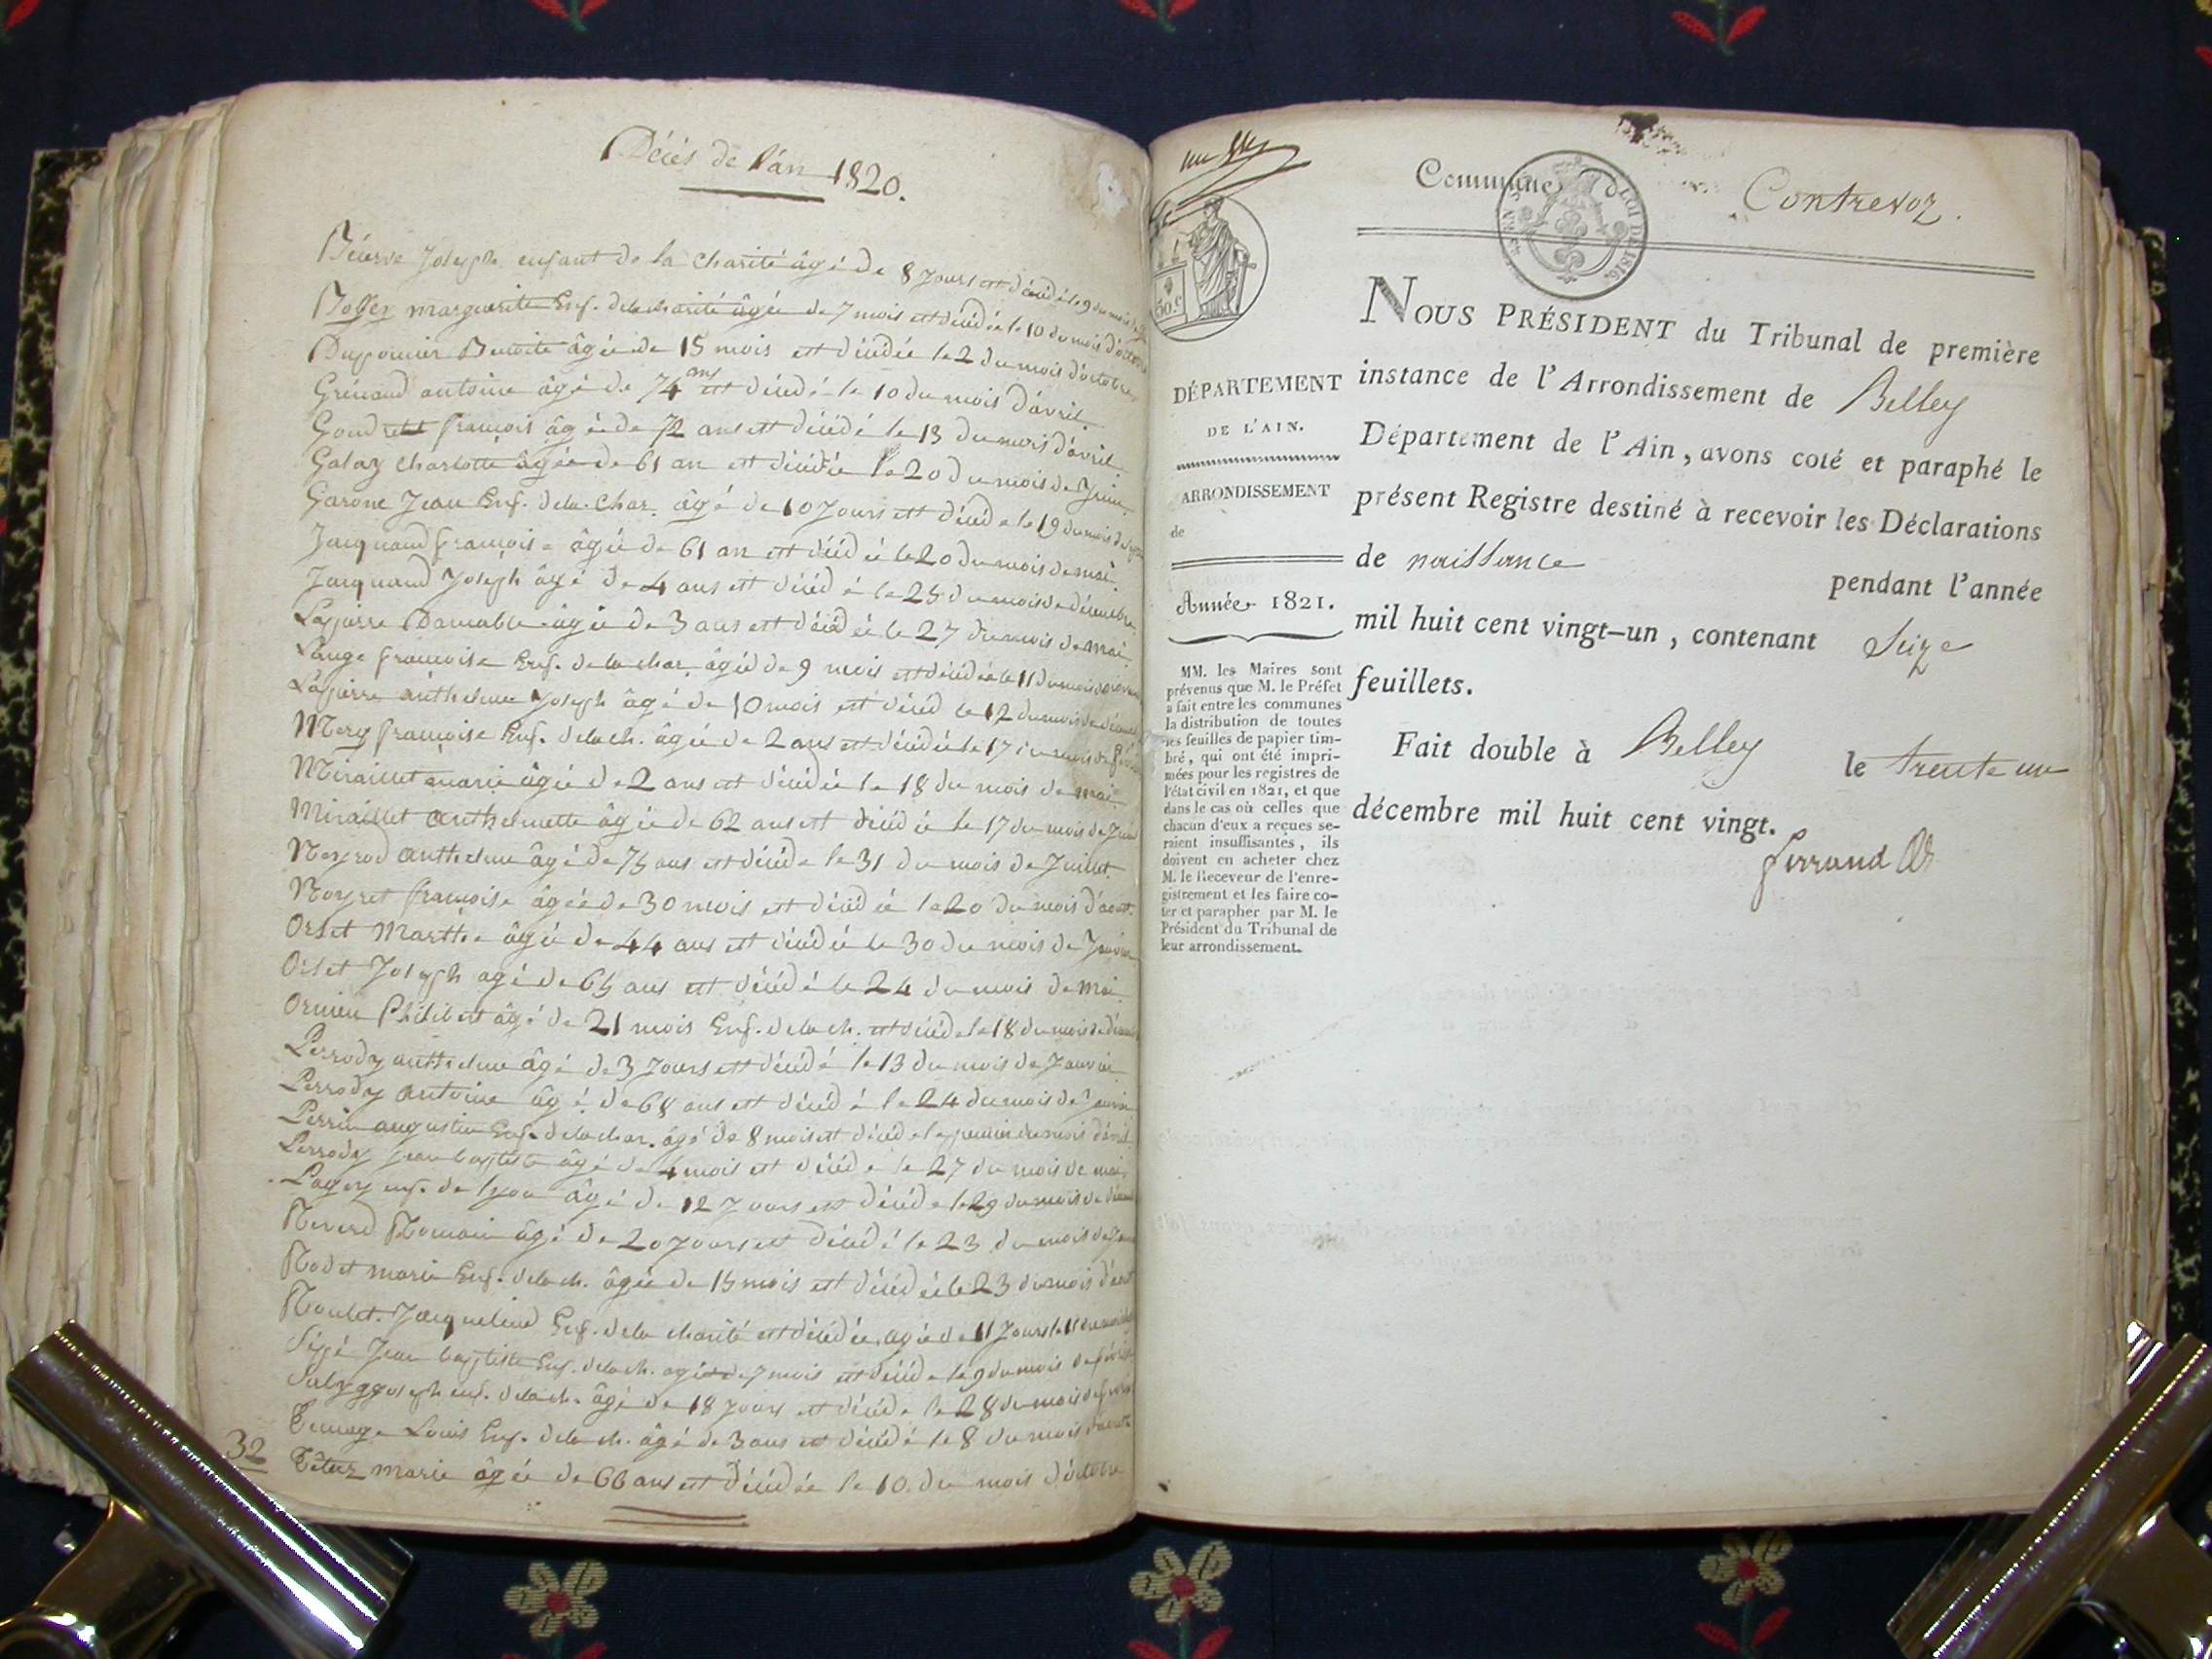 Décès de l'an 1820.
Joseph enfant de la charité âgé de 8 jours est décédé le 9 du mois
marguerite Enf. de la charité âgée de 7 mois est décédée le 10 du mois d'octobre
Benoite âgée de 15 mois est décédée le 2 du mois d'octobre
Grinand antoine âgé de 74 ans est décédé le 10 du mois d'avril.
françois âgé de 72 ans est décédé le 13 du mois d'avril
Galay Charlotte âgée de 61 an est décédée le 20 du mois de Juin.
Garone Jean Enf. de la Char. âgé de 10 jours est décéd e le 19 du mois de
Jacquand françoise âgée de 61 an est décédée le 20 du mois de mai
Jacquand Joseph âgé de 4 ans est décédé le 25 du mois de décembre
Lapierre âgée de 3 ans est décédée le 27 du mois de mai.
françoise Enf. de la char. âgée de 9 mois est décédée le 11 du mois de
Lapierre anthelme Joseph âgé de 10 mois est décéd le 12 du mois de
Mery françoise Enf. de la ch. âgée de 2 ans est décédée le 17 du mois de
Miraillet marie âgée de 2 ans est décédée le 18 du mois de mai
Miraillet anthelmette âgée de 62 ans est décédée le 17 du mois de
Neyrod anthelme âgé de 75 ans est décédé le 31 du mois de Juillet
Neyret françoise âgée de 30 mois est décédée le 20 du mois d'aout.
Orset Marthe âgée de 44 ans est décédée le 30 du mois de Janvier
Orset Joseph agé de 65 ans est décédé le 24 du mois de mai
Philibert âgé de 21 mois Enf. de la ch. est décédé le 18 du mois de
Perrody anthelme âgé de 3 jours est décédé le 13 du mois de Janvier
Perrody antoine âgé de 68 ans est décédé le 24 du mois de Janvier
Perrin augustin Enf. de la char. âgé de 8 mois est décéd e le premier du mois d'avril
Perrody jean baptiste âgé de 4 mois est décédé le 27 du mois de mai.
enf. de lyon âgé de 12 jours est décéd e le 29 du mois de
Romain âgé de 20 jours est décédé le 23 du mois de
Rodet marie Enf. de la ch. âgée de 15 mois est décédée le 23 du mois d'
Roulet. Jacqueline Enf. de la charité est décédée âgée de 11 jours le 11 du
Jean baptiste Enf. de la ch. agé de 7 mois est décéd e le 9 du mois de
joseph enf. de la ch. âgé de 18 jours est décéd e le 28 du mois de
Louis Enf. de la ch. âgé de 3 ans est décédé le 8 du mois
32
marie âgée de 66 ans est décédée le 10 du mois d'octobre
Commune de Contrevoz.
50.c
LOI DE 1816.
NOUS PRÉSIDENT du Tribunal de première
instance de l'Arrondissement de Belley
Département de l'Ain, avons coté et paraphé le
présent Registre destiné à recevoir les Déclarations
de naissance pendant l'année
mil huit cent vingt-un, contenant Seize
feuillets.
Fait double à Belley le trente un
décembre mil huit cent vingt.
DÉPARTEMENT
DE L'AIN.
ARRONDISSEMENT
de
Année 1821.
MM. les Maires sont
prévenus que M. le Préfet
a fait entre les communes
la distribution de toutes
les feuilles de papier tim-
bré, qui ont été impri-
mées pour les registres de
l'état civil en 1821, et que
dans le cas où celles que
chacun d'eux a reçues se-
raient insuffisantes, ils
doivent en acheter chez
M. le Receveur de l'enre-
gistrement et les faire co-
ter et parapher par M. le
Président du Tribunal de
leur arrondissement.